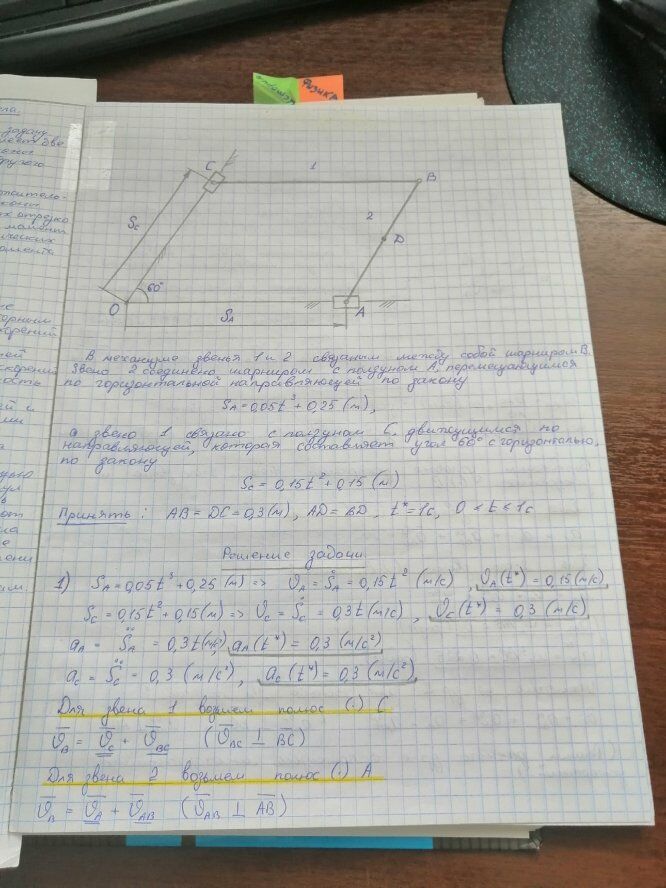 ФИЗИКА
C
1
B
2
D
Sc
60°
O
SA
A
В механизме звенья 1 и 2 связаным между собой шарниром B.
Звено 2 соединено шарниром с ползуном A, перемещающимся
по горизонтальной направляющей по закону
SA = 0,05t³ + 0,25 (м),
а звено 1 связано с ползуном C, движущимся по
направляющей, которая составляет угол 60° с горизонталью,
по закону
Sc = 0,15t² + 0,15 (м)
Принять: AB = DC = 0,3 (м), AD = BD, t* = 1c, 0 < t < 1c
Решение задачи
1) SA = 0,05t³ + 0,25 (м) => ϑA = ṠA = 0,15t² (м/с), ϑA(t*) = 0,15 (м/с)
Sc = 0,15t² + 0,15 (м) => ϑc = Ṡc = 0,3t (м/с), ϑc(t*) = 0,3 (м/с)
aA = S̈A = 0,3t (м/с²), aA(t*) = 0,3 (м/с²)
ac = S̈c = 0,3 (м/с²), ac(t*) = 0,3 (м/с²)
Для звена 1 возьмем полюс (·) C
ϑ̄B = ϑ̄C + ϑ̄BC (ϑ̄BC ⊥ BC)
Для звена 2 возьмем полюс (·) A
ϑ̄B = ϑ̄A + ϑ̄AB (ϑ̄AB ⊥ AB)